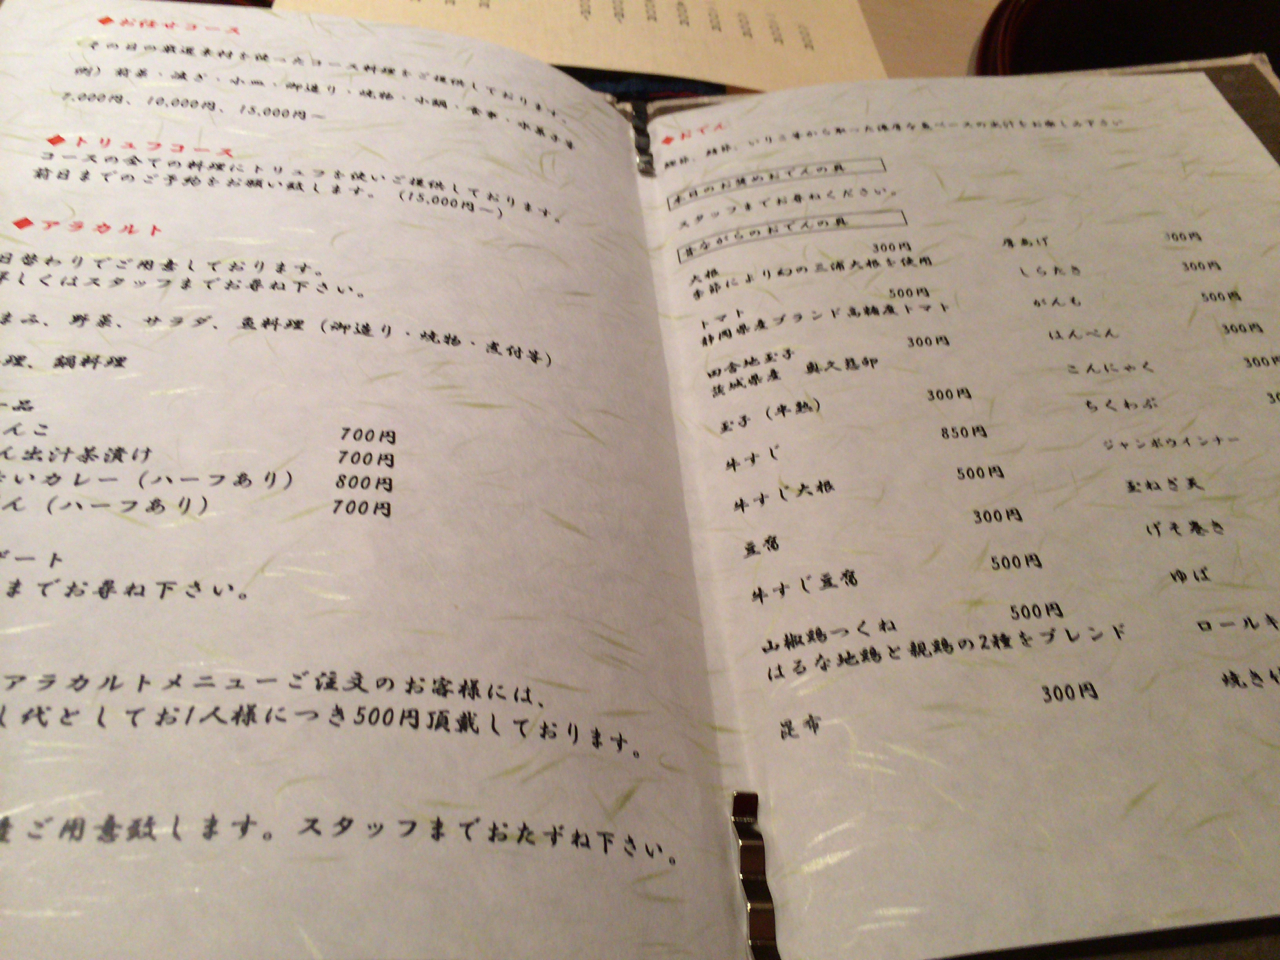 ◆お任せコース
その日の厳選素材を使ったコース料理をご提供しております。
例）前菜・凌ぎ・小皿・御造り・焼物・小鍋・食事・水菓子等
7,000円、10,000円、15,000円〜
◆トリュフコース
コースの全ての料理にトリュフを使いご提供しております。
前日までのご予約をお願い致します。（15,000円〜）
◆アラカルト
日替わりでご用意しております。
詳しくはスタッフまでお尋ね下さい。
まみ、野菜、サラダ、魚料理（御造り・焼物・煮付等）
理、鍋料理
一品
んこ 700円
ん出汁茶漬け 700円
いカレー（ハーフあり） 800円
ん（ハーフあり） 700円
ート
までお尋ね下さい。
アラカルトメニューご注文のお客様には、
し代としてお1人様につき500円頂戴しております。
ご用意致します。スタッフまでおたずね下さい。
◆おでん
鰹節、鯖節、いりこ等から取った濃厚な魚ベースの出汁をお楽しみ下さい
本日のお奨めおでんの具
スタッフまでお尋ねください。
昔ながらのおでんの具
大根 300円
季節により幻の三浦大根を使用
トマト 500円
静岡県産ブランド高糖度トマト
田舎地玉子 300円
茨城県産 奥久慈卵
玉子（半熟） 300円
牛すじ 850円
牛すじ大根 500円
豆腐 300円
牛すじ豆腐 500円
山椒鶏つくね 500円
はるな地鶏と親鶏の2種をブレンド
昆布 300円
厚あげ 300円
しらたき 300円
がんも 500円
はんぺん 300円
こんにゃく 300円
ちくわぶ 30
ジャンボウインナー
玉ねぎ天
げそ巻き
ゆば
ロールキ
焼き